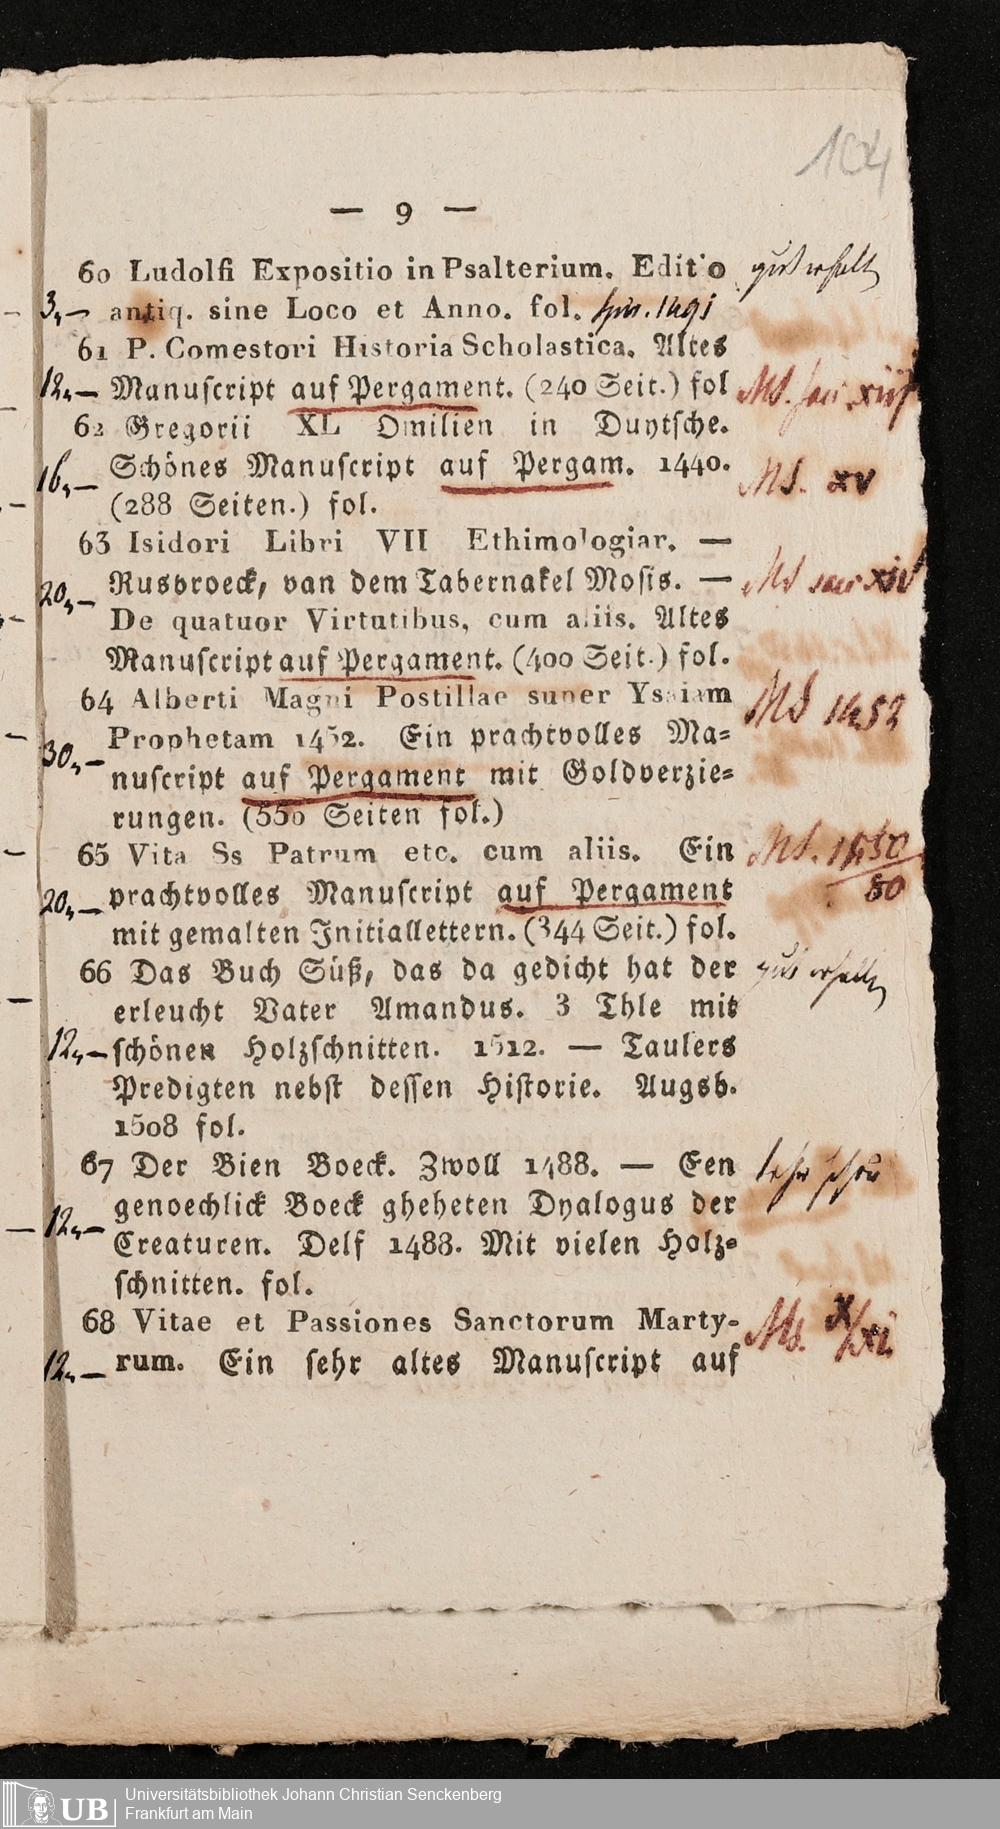 104
— 9 —
60 Ludolfi Expositio in Psalterium. Editio gut erhalt
3,,— antiq. sine Loco et Anno. fol. Spir. 1491
61 P. Comestori Historia Scholastica. Altes
12,,— Manuſcript auf Pergament. (240 Seit.) fol MS. saec. xiii
62 Gregorii XL Omilien in Duytſche.
16,,— Schönes Manuſcript auf Pergam. 1440. MS. xv
(288 Seiten.) fol.
63 Isidori Libri VII Ethimologiar. —
20,,— Rusbroeck, van dem Tabernakel Moſis. — MS saec xiv
De quatuor Virtutibus, cum aliis. Altes
Manuſcript auf Pergament. (400 Seit.) fol.
64 Alberti Magni Postillae super Ysaiam MS 1452
Prophetam 1452. Ein prachtvolles Ma-
30,,— nuſcript auf Pergament mit Goldverzie-
rungen. (550 Seiten fol.)
65 Vita Ss Patrum etc. cum aliis. Ein MS. 1450
20,,— prachtvolles Manuſcript auf Pergament 50
mit gemalten Initiallettern. (344 Seit.) fol.
66 Das Buch Süß, das da gedicht hat der gut erhalt
erleucht Vater Amandus. 3 Thle mit
12,,— ſchönen Holzſchnitten. 1512. — Taulers
Predigten nebſt deſſen Hiſtorie. Augsb.
1508 fol.
67 Der Bien Boeck. Zwoll 1488. — Een sehr schön
12,,— genoechlick Boeck gheheten Dyalogus der
Creaturen. Delf 1488. Mit vielen Holz-
ſchnitten. fol.
68 Vitae et Passiones Sanctorum Marty- Ms. X/XI.
12,,— rum. Ein ſehr altes Manuſcript auf
UB Universitätsbibliothek Johann Christian Senckenberg
Frankfurt am Main